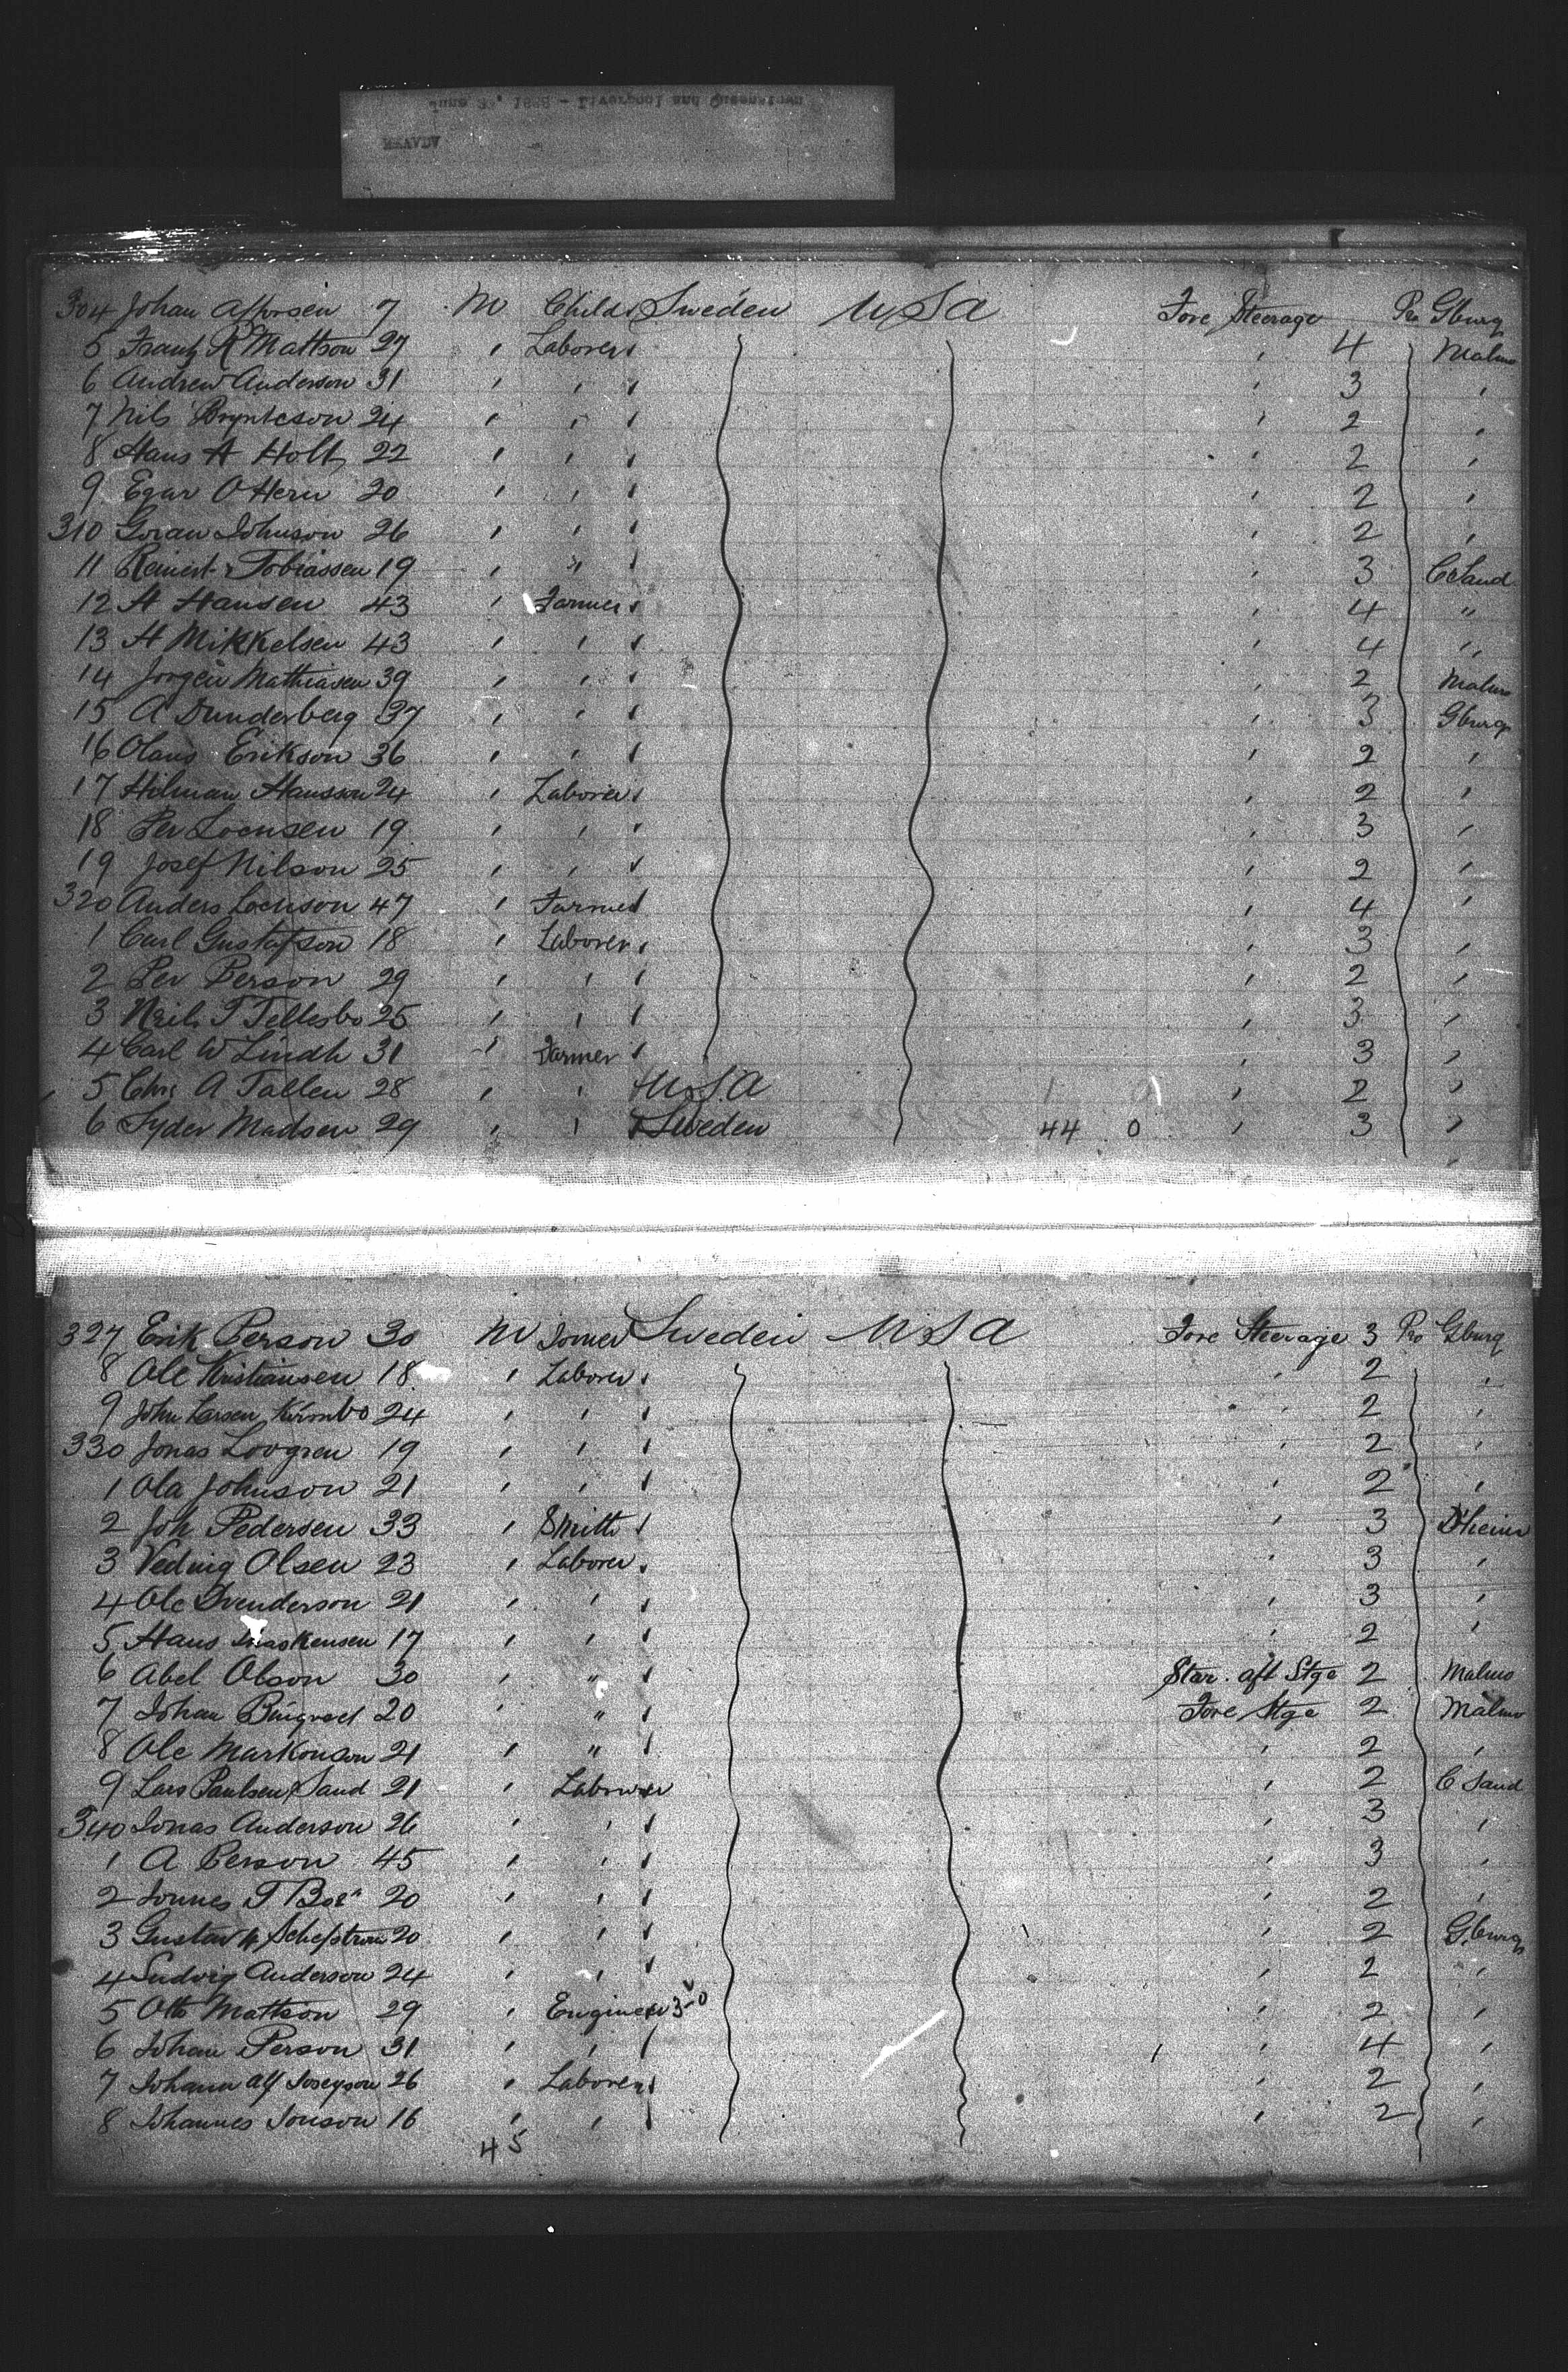 June 1888 - Liverpool and Queenstown
304 Johan 7 M Child Sweden USA Fore Steerage Pro Gburg
5 Frantz R Mattson 27 ' Laborer ' ' 4 Malmo
6 Andrew Anderson 31 ' ' ' ' 3 '
7 Nils Brynteson 24 ' ' ' ' 2 '
8 Hans A Holt 22 ' ' ' ' 2 '
9 Egar O Hern 20 ' ' ' ' 2 '
310 Goran Johnson 26 ' ' ' ' 2 '
11 Reinert Tobiassen 19 ' " ' ' 3 C Sand
12 H Hansen 43 ' Farmer ' ' 4 "
13 H Mikkelsen 43 ' ' ' ' 4 "
14 Jorgen Mathiasen 39 ' ' ' ' 2 Malmo
15 A Dunderberg 37 ' ' ' ' 3 Gburg
16 Olaus Erikson 36 ' ' ' ' 2 '
17 Hilman Hansson 24 ' Laborer ' ' 2 '
18 Per Loensen 19 ' ' ' ' 3 '
19 Josef Nilson 25 ' ' ' ' 2 '
320 Anders Loenson 47 ' Farmer ' 4 '
1 Carl Gustafson 18 ' Laborer ' ' 3 '
2 Per Person 29 ' ' ' ' 2 '
3 T Tellesbo 25 ' ' ' ' 3 '
4 Carl W Lindh 31 ' Farmer ' ' 3 '
5 Chr A Tallen 28 ' ' USA ' 2 '
6 Syder Madsen 29 ' ' Sweden 44 0 ' 3 '
327 Erik Person 30 M Joiner Sweden USA Fore Steerage 3 Pro Gburg
8 Ole Kristiansen 18 ' Laborer ' ' 2 '
9 John Larsen Kirmbo 24 ' ' ' ' 2 '
330 Jonas Lovgren 19 ' ' ' ' 2 '
1 Ola Johnson 21 ' ' ' ' 2 '
2 Joh Pedersen 33 ' Smith ' ' 3 D'heim
3 Vednig Olsen 23 ' Laborer ' ' 3 '
4 Ole Svenderson 21 ' ' ' ' 3 '
5 Hans 17 ' ' ' ' 2 '
6 Abel Olson 30 ' " ' Star. aft Stge 2 Malmo
7 Johan 20 ' " ' Fore Stge 2 Malmo
8 Ole Markonson 21 ' " ' ' 2 '
9 Lars Paulsen Sand 21 ' Laborer ' 2 C Sand
340 Jonas Anderson 26 ' ' ' ' 3 '
1 A Person 45 ' ' ' ' 3 '
2 Jonnes T 20 ' ' ' ' 2 '
3 Gustav 20 ' ' ' ' 2 Gburg
4 Ludvig Anderson 24 ' ' ' ' 2 '
5 Otto Mattson 29 ' Engineer ' 2 '
6 Johan Person 31 ' ' ' ' 4 '
7 Johann Alf Josepson 26 ' Laborer ' ' 2 '
8 Johannes Jonson 16 ' ' ' ' 2 '
45